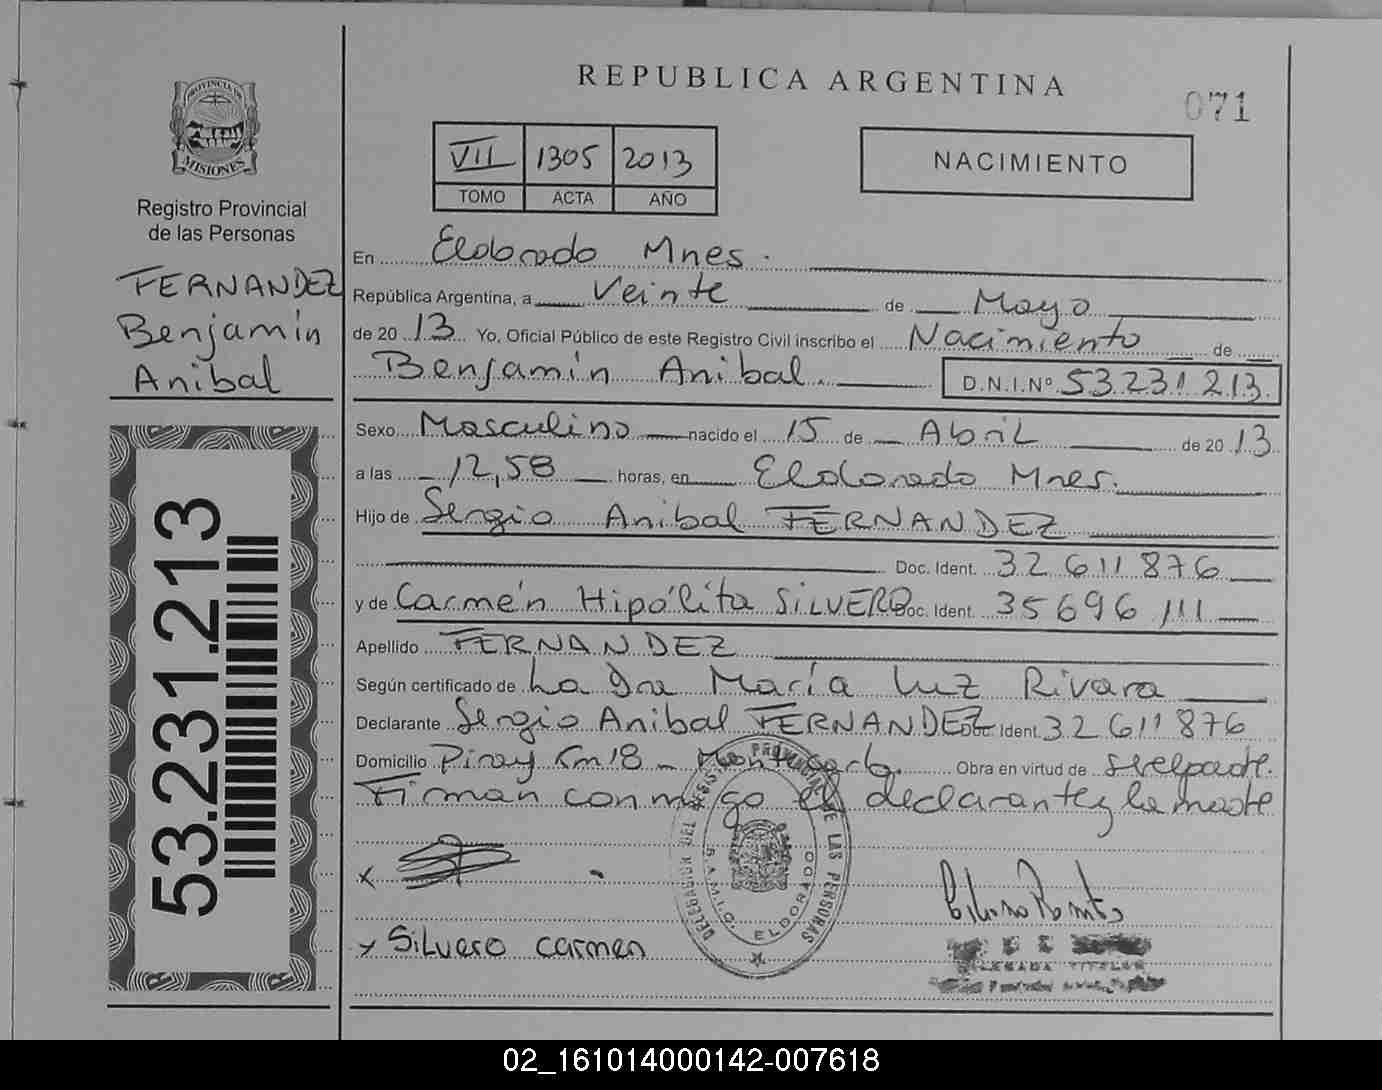 REPUBLICA ARGENTINA
071
PROVINCIA DE
MISIONES
Registro Provincial
de las Personas
FERNANDEZ
Benjamín
Anibal
53.231.213
VII 1305 2013
TOMO ACTA AÑO
NACIMIENTO
En Eldorado Mnes.
República Argentina, a veinte de Mayo
de 20 13 Yo, Oficial Público de este Registro Civil inscribo el Nacimiento de
Benjamín Anibal. D.N.I.Nº 53.231.213
Sexo Masculino nacido el 15 de Abril de 20 13
a las 12,58 horas, en Eldorado Mnes.
Hijo de Sergio Anibal FERNANDEZ
Doc. Ident. 32 611 876
y de Carmén Hipólita SILVERO Doc. Ident. 35696 111
Apellido FERNANDEZ
Según certificado de La Dra María Luz Rivara
Declarante Sergio Anibal FERNANDEZ Doc Ident. 32 611 876
Domicilio Piray Km 18 - Montecarlo. Obra en virtud de ser el padre.
Firman conmigo el declarante y la madre
x
DELEGACION DEL REGISTRO PROVINCIAL DE LAS PERSONAS
ELDORADO
x Silvero carmen
DELEGADA TITULAR
02_161014000142-007618